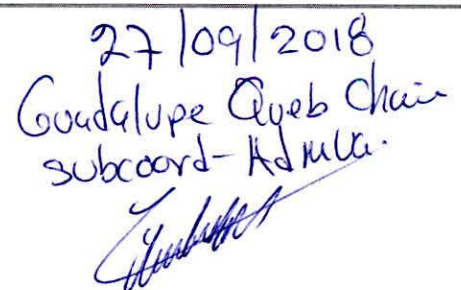 27/09/2018
Guadalupe Queb Chan
subcoord-Admva.